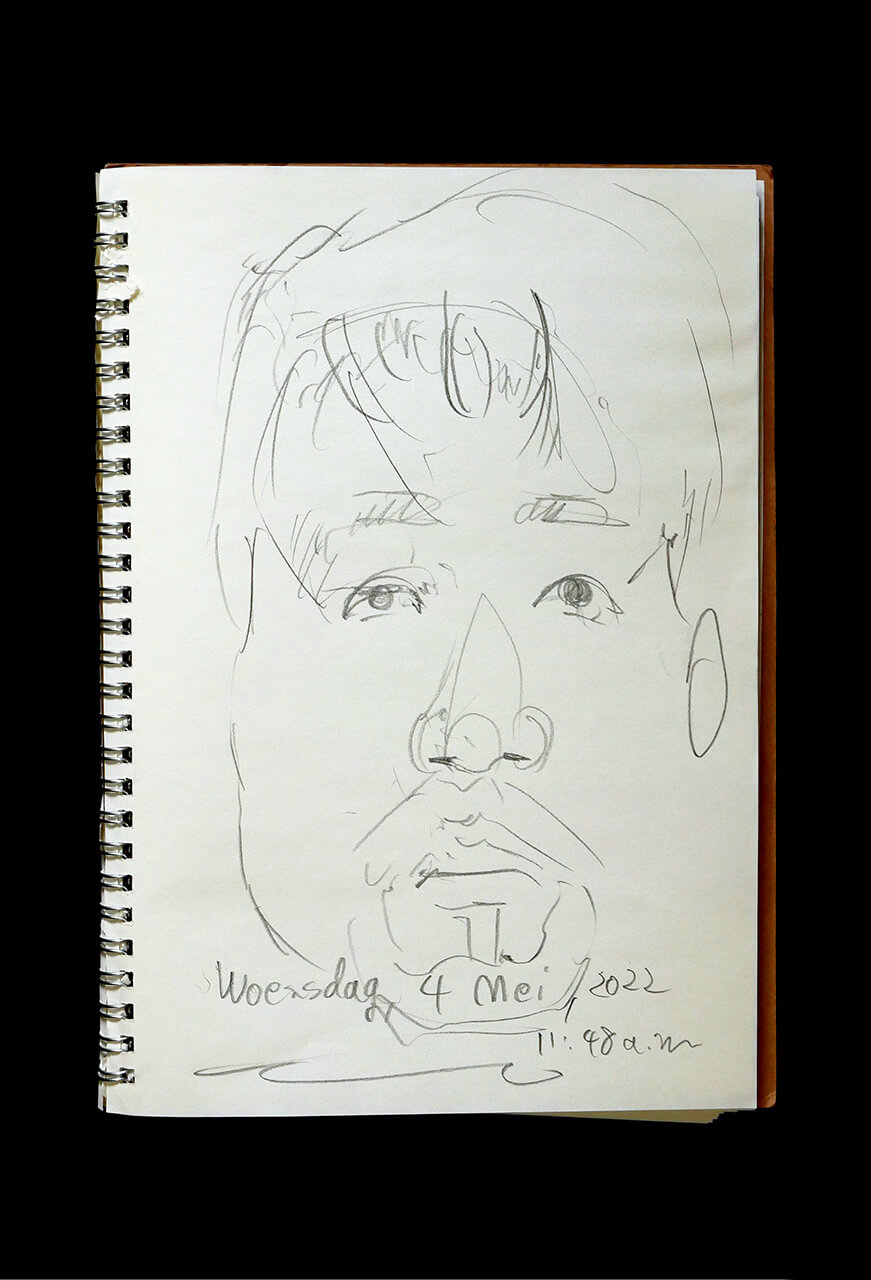 Woensdag 4 Mei, 2022
11:48 a.m